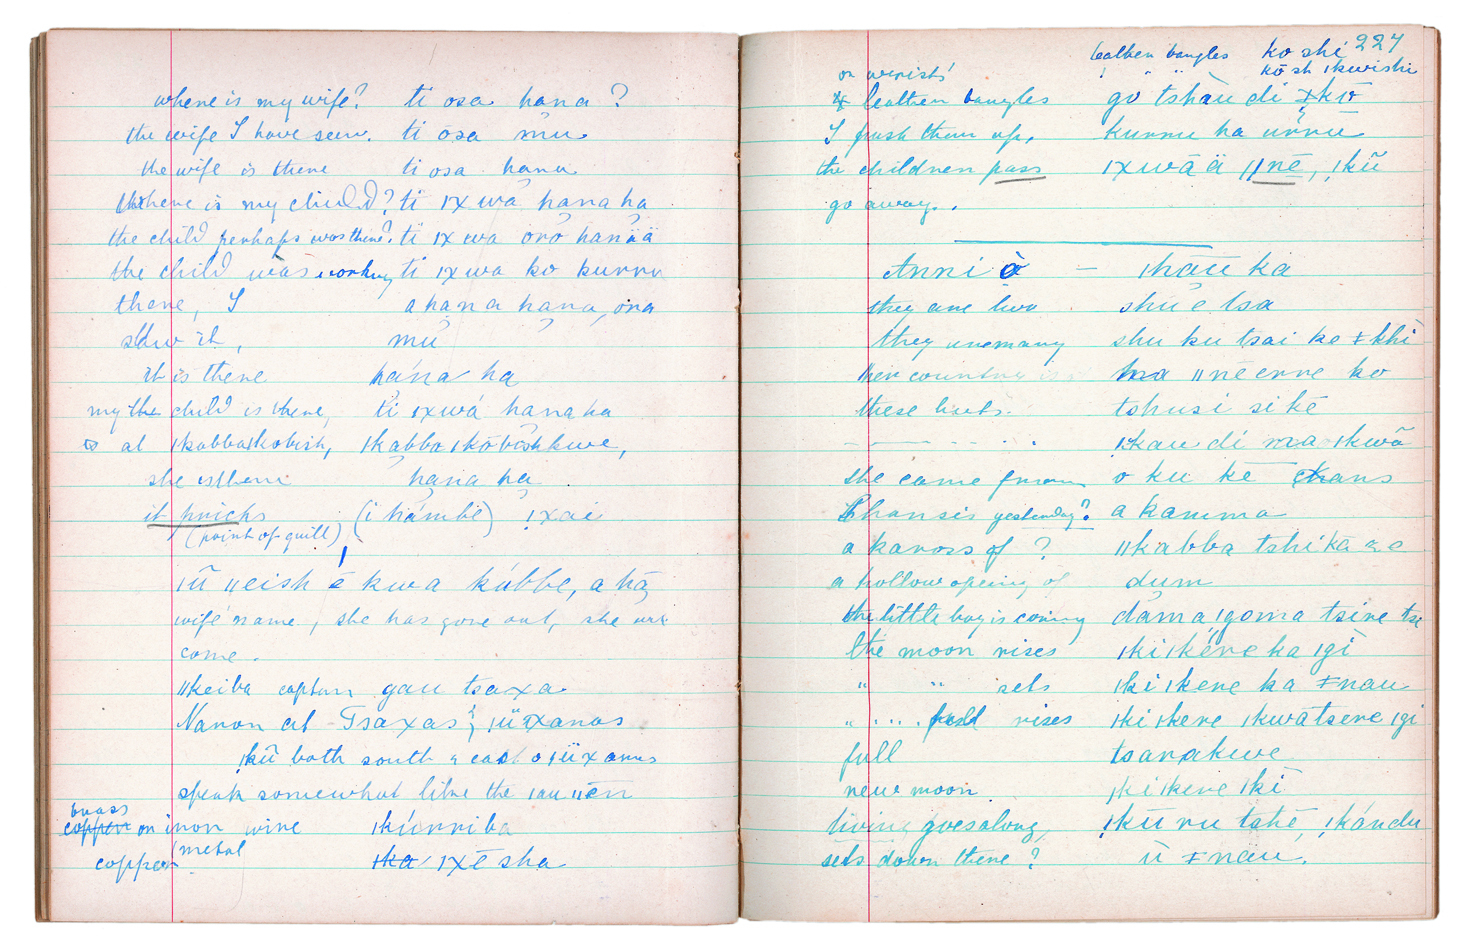 where is my wife? ti osa hana ?
the wife I have seen. ti ōsa mu
the wife is there ti osa hana
where is my child? ti ıxwa hana ha
the child perhaps was there? ti ıxwa oro hana ä
the child was working ti ıxwa ko kurru
there, I a hana hana, ora
saw it, mu
it is there hána ha
my the child is there, ti ıxwá hana ha
at ıkabbaıkobish, ıkabba ıkōbish kwe,
she is there hana ha
it pricks (i hámbē) !xai
(point of quill)
ıū ıı eish ē kwa kúbbe, a hā
wife name, she has gone out, she
come.
ııkeiba captun gau tsaxa
Nanon at Tsaxas ; ıüxanas
ıkū both south & east o ıüxanas
speak somewhat like the ıau ııēn
brass
copper on iron wire ıkúrriba
copper metal ıka ıxē sha
227
leathen bangles ko shi
kō sh ıkwishi
on wrists
leathen bangles go tshàu di ǂkō
I push them up, kurru ha urrū
the children pass ıxwā ä ııne, ıkū
go away.
Anni à — ıhāū ka
they are two shu e tsa
they are many shu ku tsai ke ǂkhi
her country is ha ıı nē erre ko
these huts. tshusi si kē
ıkau di ma ıkwā
she came from o ku kē chans
Chansis yesterday? a kamma
a kaross of ? ııkabba tshi kā
a hollow opening of dum
the little boy is coming dáma ıgoma tsire tse
the moon rises ıki ıkére ka ıgì
" " sets ıki ıkere ka ǂnau
" .... full rises ıki ıkere ıkwātsere ıgi
full tsarakwe
new moon ıkikere ıkī
living goes along, ıkū ru tshē, ıkándu
sets down there ? ù ǂnāu.